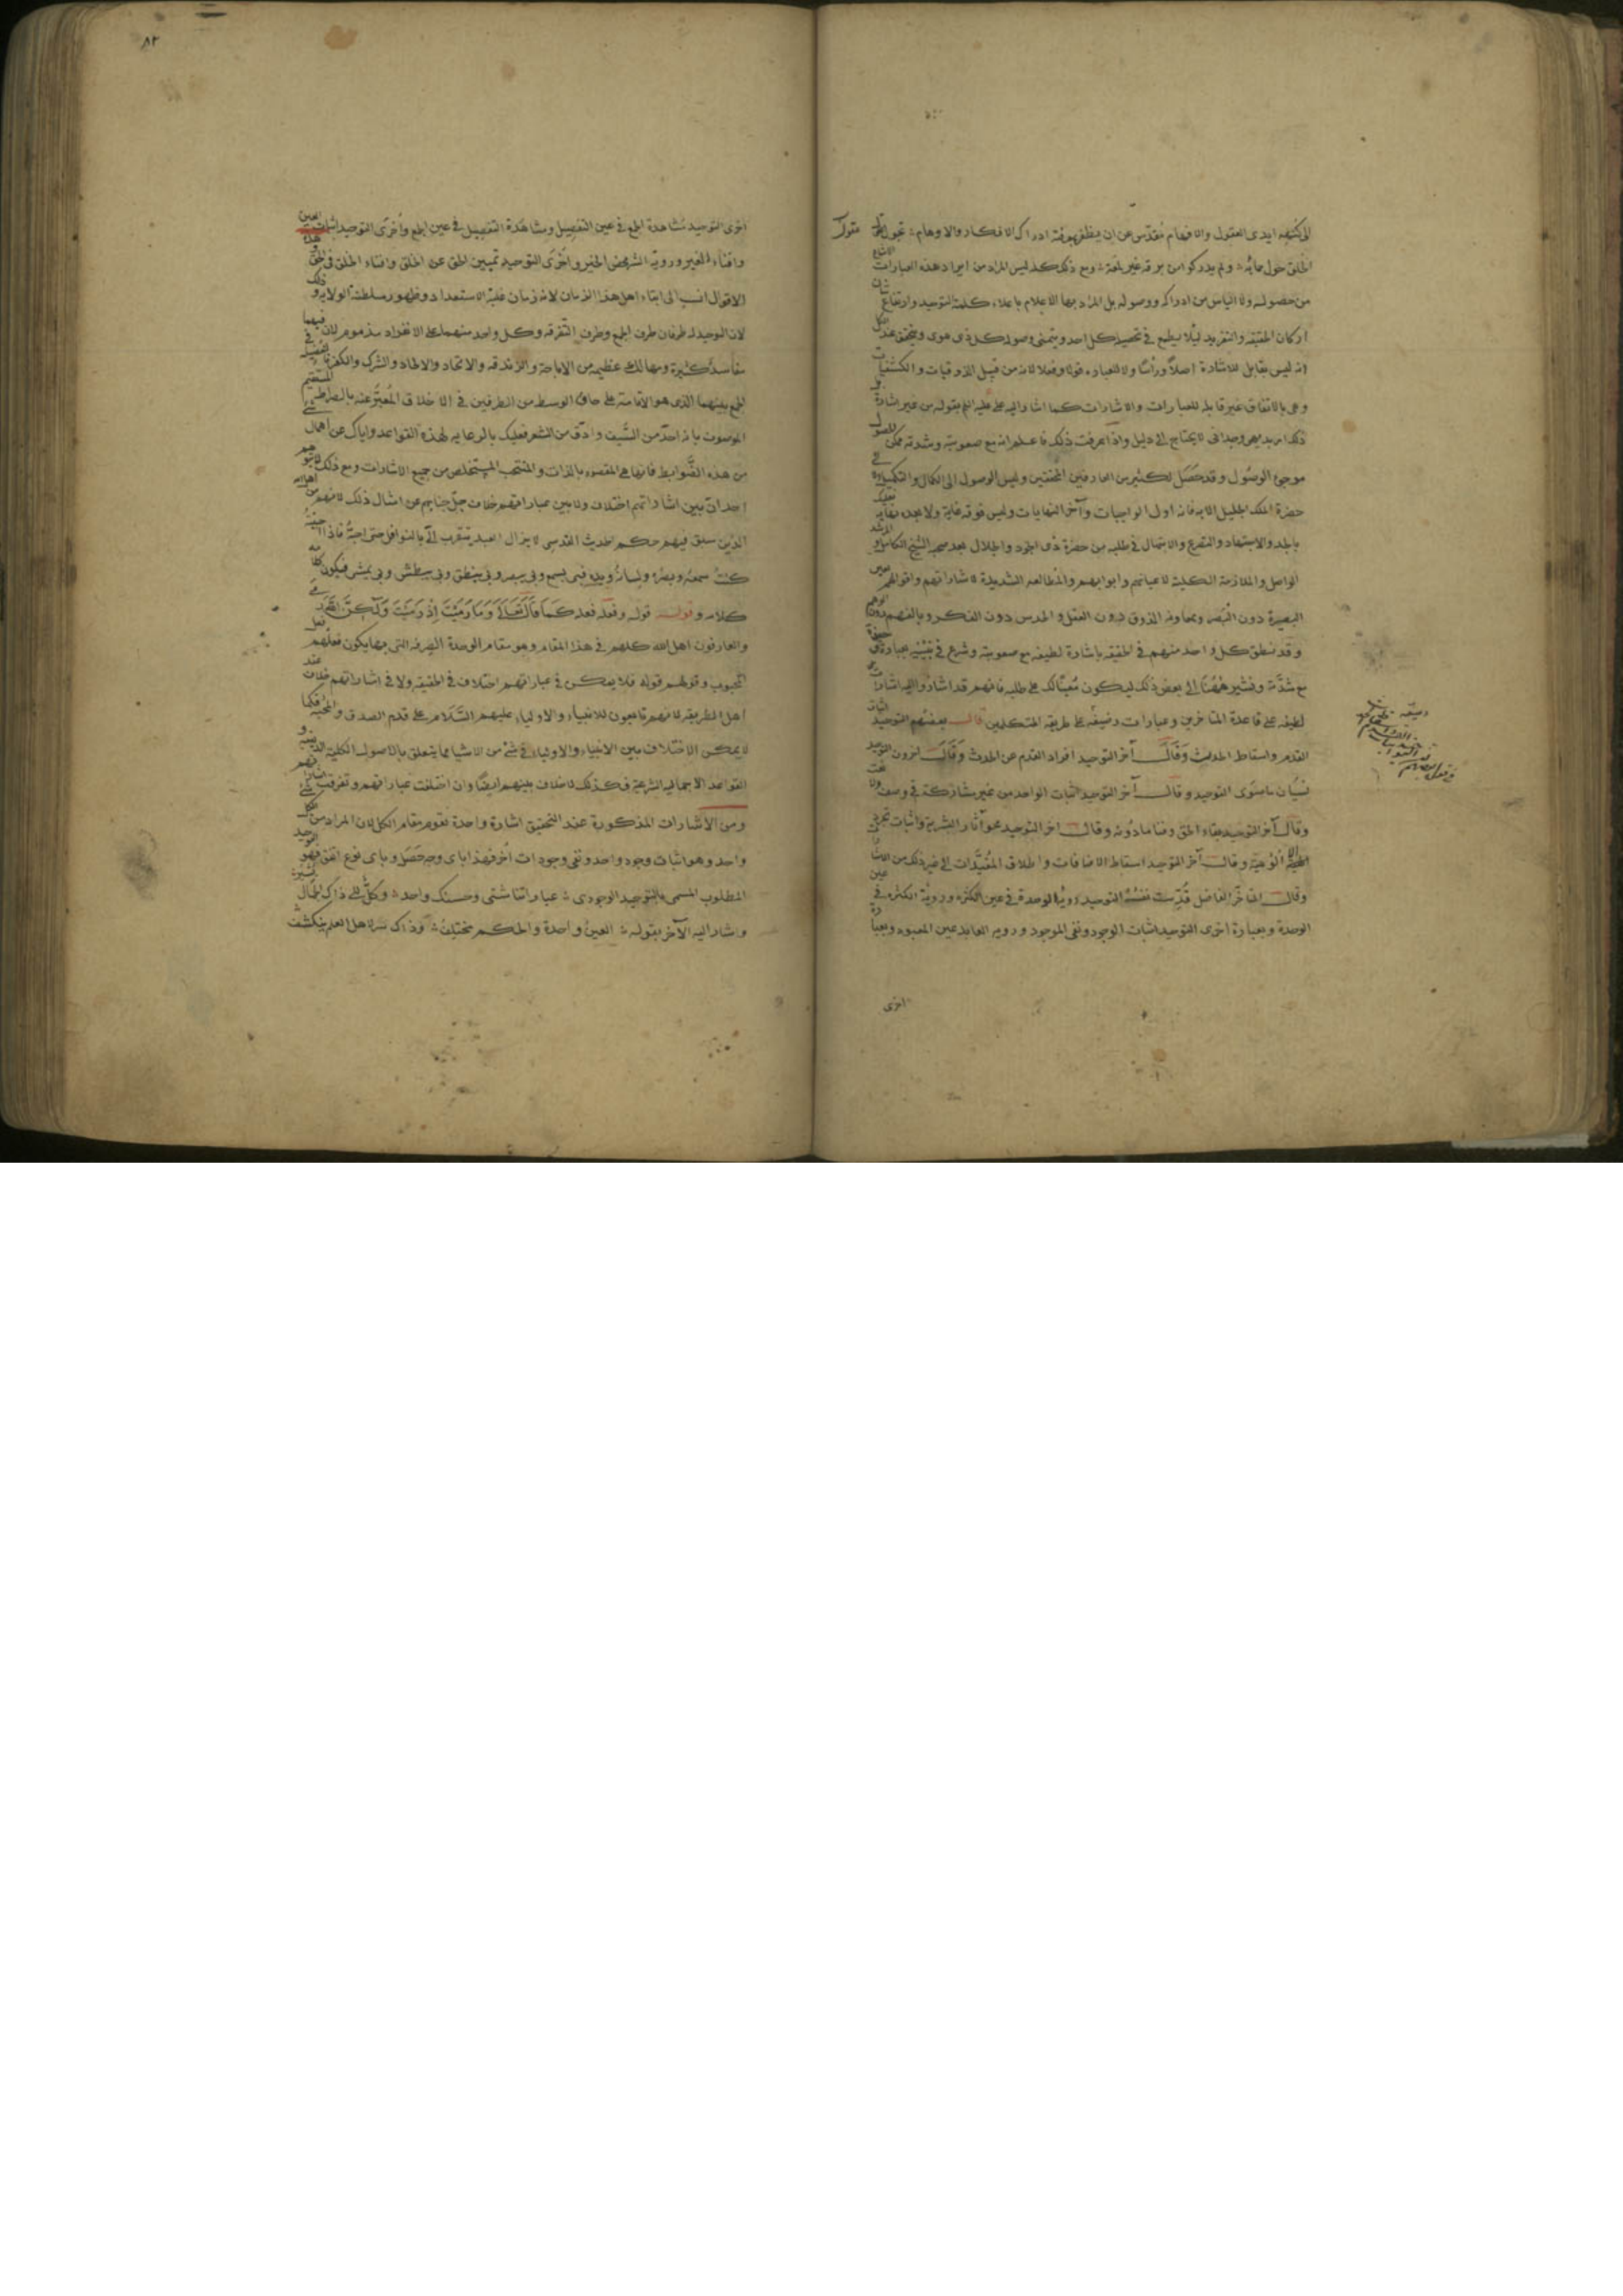 الى كنهه ايدى العقول والافهام مقدس عن ان يظفر بمعرفته ادراك الافكار والاوهام تجول عقول
الخلق حول حمائه ولم يدركوا من برقه غير لمعة ومع ذلك كله ليس المراد من ايراد هذه العبارات الامتناع
من حصوله ولا الياس من ادراكه ووصوله بل المراد بها الاعلام باعلاء كلمة التوحيد وارتفاع شان
اركان الحقيقة والتفريد ليلا يطمع فى تحصيله كل احد ويتمنى وصوله كل ذى هوى ويتحقق عند الكل
انه ليس بقابل للاشارة اصلا ورأسا ولا للعبارة قولا وفعلا لانه من قبيل الذوقيات والكشفيات
وهى بالاتفاق غير قابلة للعبارات والاشارات كما اشار اليه على عليه السلم بقوله من غير اشارة بل
ذلك امر بديهى وجدانى لا يحتاج الى دليل واذا عرفت ذلك فاعلم انه مع صعوبته وشدته ممكن الحصول
موجى الوصول وقد حصل لكثير من العارفين المحققين وليس الوصول الى الكمال والتكميل فى
حضرة الملك الجليل الا به فانه اول الواجبات وآخر النهايات وليس فوقه غاية ولا بعده نهاية فعليك
بالجد والاجتهاد والتضرع والابتهال فى طلبه من حضرة ذى الجود والجلال بعد صحبة الشيخ الكامل والمرشد
الواصل والملازمة الكلية لاعتابهم وابوابهم والمطالعة الشديدة لاشاراتهم واقوالهم بعين
البصيرة دون البصر وبمعاونة الذوق دون العقل والحدس دون الفكر وبالفهم دون الوهم
وقد نطق كل واحد منهم فى الحقيقة باشارة لطيفة مع صعوبته وشرع فى تبيينه بعبارة خفيفة
مع شدته ونشير ههنا الى بعض ذلك ليكون معينا لك على طلبه فانهم قد اشاروا اليه اشارات
لطيفة على قاعدة المتاخرين وعبارات رضيفة على طريقة المتكلمين قال بعضهم التوحيد اثبات
القدم واسقاط الحدث وقال آخر التوحيد افراد القدم عن الحدث وقال اخرون التوحيد
نسيان ما سوى التوحيد وقال آخر التوحيد اثبات الواحد من غير مشاركته فى وصف ولا نعت
وقال آخر التوحيد بقاء الحق وفنا ما دونه وقال اخر التوحيد محو آثار البشرية واثبات تجريد
الالوهية وقال آخر التوحيد اسقاط الاضافات واطلاق المقيدات الى غير ذلك من الاشارات
وقال المتاخر الفاضل قدست نفسه التوحيد روية الوحدة فى عين الكثرة وروية الكثرة فى عين
الوحدة وبعبارة اخرى التوحيد اثبات الوجود ونفى الموجود وروية العابد عين المعبود وبعبارة
اخرى
٨٢
اخرى التوحيد مشاهدة الجمع فى عين التفصيل ومشاهدة التفصيل فى عين الجمع وأخرى التوحيد اثبات العين
وافناء الغير وروية الشر محض الخير وأخرى التوحيد تمييز الحق عن الخلق وافناء الخلق فى الحق وهذه
الاقوال انسب الى ابناء اهل هذا الزمان لانه زمان غلبة الاستعداد وظهور سلطنة الولاية وذلك
لان التوحيد له طرفان طرف الجمع وطرف التفرقة وكل واحد منهما على الانفراد مذموم لان فيهما
مفاسد كثيرة ومهالك عظيمة من الاباحة والزندقة والاتحاد والالحاد والشرك والكفر فالفضيلة فى
الجمع بينهما الذى هو الاقامة على حاق الوسط من الطرفين فى الاخلاق المعبر عنه بالصراط المستقيم
الموصوف بانه احد من السيف وادق من الشعر فعليك بالرعاية لهذه القواعد واياك عن اهمال شئ
من هذه الضوابط فانها هى المقصود بالذات والمنتخب المستخلص من جميع الاشارات ومع ذلك لا يتوهم
احد ان بين اشاراتهم اختلاف ولا بين عباراتهم خلاف جل جنابهم عن امثال ذلك لانهم من اهل الله
الذين سبق فيهم حكم الحديث القدسى لا يزال العبد يتقرب الى بالنوافل حتى احبه فاذا احببته
كنت سمعه وبصره ولسانه ويده فبى يسمع وبى يبصر وبى ينطق وبى يبطش وبى يمشى فيكون كلامه
كلامه وقوله قوله وفعله فعله كما قال تعالى وما رميت اذ رميت ولكن الله رمى
والعارفون اهل الله كلهم فى هذا المقام وهو مقام الوحدة الصرفة التى بها يكون فعلهم فعل
المحبوب وقولهم قوله فلا يمكن فى عباراتهم اختلاف فى الحقيقة ولا فى اشاراتهم خلاف عند
اهل الطريقة لانهم تابعون للانبياء والاولياء عليهم السلام على قدم الصدق والمحبة فكما
لا يمكن الاختلاف بين الانبياء والاولياء فى شئ من الاشيا مما يتعلق بالاصول الكلية الدينية و
القواعد الاجمالية الشرعية فكذلك لا خلاف بينهم ايضا وان اختلفت عباراتهم وتفرقت اشاراتهم
ومن الاشارات المذكورة عند التحقيق اشارة واحدة تقوم مقام الكل لان المراد من الكل
واحد وهو اثبات وجود واحد ونفى وجودات أخر فهذا باى وجه حصل وباى نوع اتفق فهو التوحيد
المطلوب المسمى بالتوحيد الوجودى عباراتنا شتى وحسنك واحد وكل الى ذاك الجمال يشير
واشار اليه الآخر بقوله العين واحدة والحكم مختلف وذاك سر لاهل العلم ينكشف